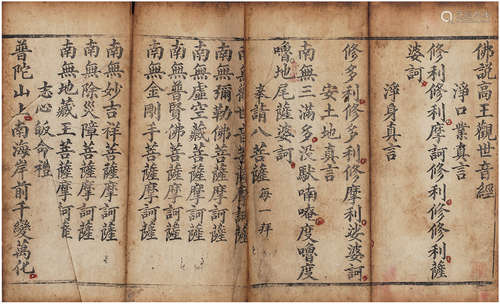 佛說高王觀世音經
淨口業真言
修利修利摩訶修利修修利薩
婆訶
淨身真言
修多利修多利修摩利娑婆訶
安土地真言
南無三滿多沒馱喃唵度嚕度
嚕地尾薩婆訶
奉請八菩薩每一拜
南無觀世音菩薩摩訶薩
南無彌勒佛菩薩摩訶薩
南無虛空藏菩薩摩訶薩
南無普賢佛菩薩摩訶薩
南無金剛手菩薩摩訶薩
南無妙吉祥菩薩摩訶薩
南無除災障菩薩摩訶薩
南無地藏王菩薩摩訶薩
志心皈命禮
普陀山上南海岸前千變萬化